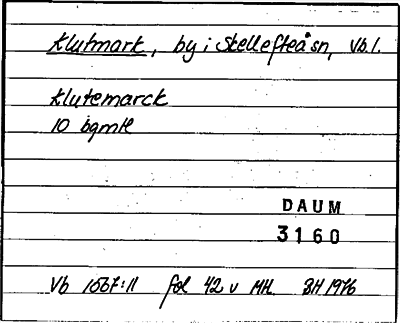 Klutmark, by i Skellefteå sn, Vb.l.
Klutemarck
10 bgmk
DAUM
3160
Vb 1567:11 fol 42 v MH. BH 1976